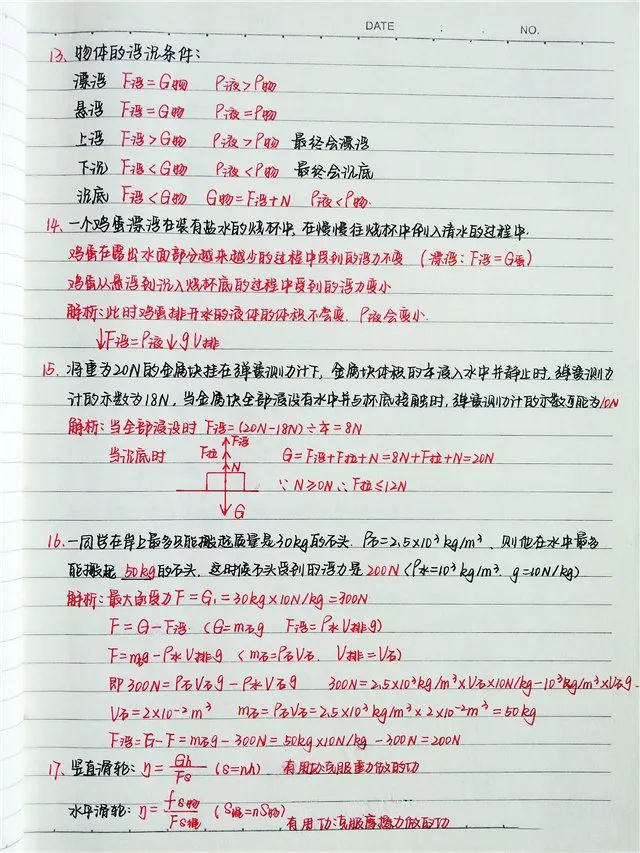 DATE . . NO.
13、物体的浮沉条件:
漂浮 F浮=G物 ρ液>ρ物
悬浮 F浮=G物 ρ液=ρ物
上浮 F浮>G物 ρ液>ρ物 最终会漂浮
下沉 F浮<G物 ρ液<ρ物 最终会沉底
沉底 F浮<G物 G物=F浮+N ρ液<ρ物
14、一个鸡蛋漂浮在装有盐水的烧杯中,在慢慢往烧杯中倒入清水的过程中.
鸡蛋在露出水面部分越来越少的过程中受到的浮力不变 (漂浮:F浮=G蛋)
鸡蛋从悬浮到沉入烧杯底的过程中受到的浮力变小
解析:此时鸡蛋排开水的液体的体积不会变.ρ液会变小.
↓F浮=ρ液↓gV排
15、将重为20N的金属块挂在弹簧测力计下,金属块体积的 浸入水中并静止时,弹簧测力
计的示数为18N,当金属块全部浸没有水中并与杯底接触时,弹簧测力计的示数可能为10N
解析:当全部浸没时 F浮=(20N-18N)÷ =8N
当沉底时 G=F浮+F拉+N=8N+F拉+N=20N
F浮
F拉
N
∵N≥0N∴F拉≤12N
G
16、一同学在岸上最多只能搬起质量是30kg的石头.ρ石=2.5×10³kg/m³、则他在水中最多
能搬起 50kg的石头,这时候石头受到的浮力是200N(ρ水=10³kg/m³.g=10N/kg)
解析:最大承受力F=G₁=30kg×10N/kg=300N
F=G-F浮.(G=m石g F浮=ρ水V排g)
F=m石g-ρ水V排g (m石=ρ石V石. V排=V石)
即300N=ρ石V石g-ρ水V石g 300N=2.5×10³kg/m³×V石×10N/kg-10³kg/m³×V石g-
V石=2×10⁻²m³ m石=ρ石V石=2.5×10³kg/m³×2×10⁻²m³=50kg
F浮=G-F=m石g-300N=50kg×10N/kg-300N=200N
17、竖直滑轮:η=Gh/Fs (s=nh) 有用功克服重力做的功
水平滑轮:η=fs物/Fs绳 (S绳=nS物) 有用功克服摩擦力做的功